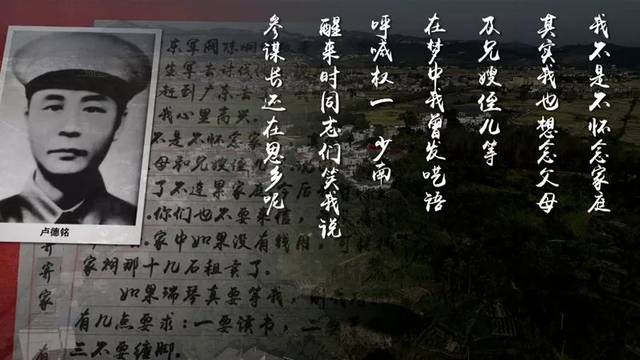 我不是不怀念家庭
其实我也想念父母
及兄嫂侄儿等
在梦中我曾发呓语
呼喊权一 少南
醒来时同志们笑我说
参谋长还在思乡呢
卢德铭
东军阀陈炯
军去讨伐
赶到广东去
我心里高兴。
不是不怀念家
母和兄嫂侄
了不连累家庭今后
你们也不要来信，
家中如果没有钱用，
家祠那十几石租卖了。
如果瑞琴真要等我，
有几点要求：一要读书，二
三不要缠脚。